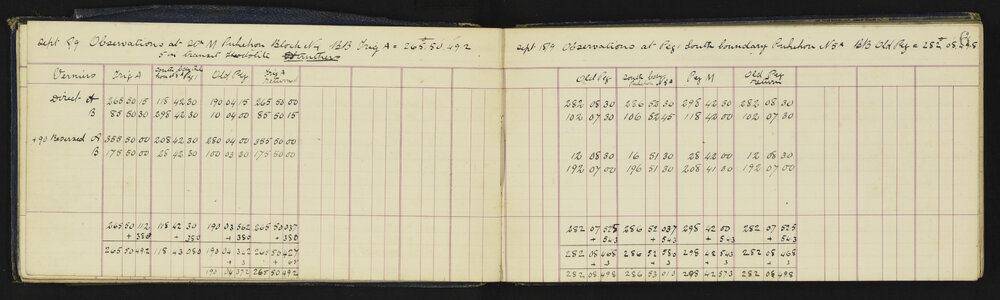 Sept 8/9 Observations at Stn M Puhuhon Block N4 BB Trig A = 265 50 49.2
5 in transit theodolite
Vernier Trig A South bdy Old Peg Trig A return
Direct A 265 50 15 118 42 30 190 04 15 265 50 00
B 85 50 30 298 42 30 10 04 00 85 50 15
+90 Reversed A 355 50 00 208 42 30 280 04 00 355 50 00
B 175 50 00 28 42 30 100 03 30 175 50 00
265 50 11.2 118 42 30 190 03 56.2 265 50 03.7
+ 38.0 + 38.0 + 38.0 + 38.0
265 50 49.2 118 43 08.0 190 04 34.2 265 50 41.7
+ 3
190 04 37.2 265 50 49.2
Sept 8/9 Observations at Peg: South boundary Puhuhon N5A BB Old Peg = 282 08 49.8
Old Peg South bdy Peg M Old Peg return
282 08 30 286 52 30 298 42 30 282 08 30
102 07 30 106 52 45 118 42 00 102 07 30
12 08 30 16 51 30 28 42 00 12 08 30
192 07 00 196 51 30 208 41 30 192 07 00
282 07 52.5 286 52 03.7 298 42 00 282 07 52.5
+ 54.3 + 54.3 + 54.3 + 54.3
282 08 46.8 286 52 58.0 298 42 54.3 282 08 46.8
+ 3 + 3 + 3 + 3
282 08 49.8 286 53 01.0 298 42 57.3 282 08 49.8